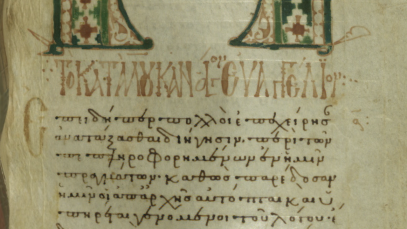 ΤΟ ΚΑΤΑ ΛΟΥΚΑΝ ΑΓΙΟΝ ΕΥΑΓΓΕΛΙΟΝ
Επιδηπερ πολλοι επεχειρησ
αναταξασθαι διηγησιν περι των
πεπληροφορημενων εν ημιν
πραγματων καθως παρεδοσαν
ημιν οι απαρχης αυτοπται και υ
πηρεται γενομενοι του λογου ε